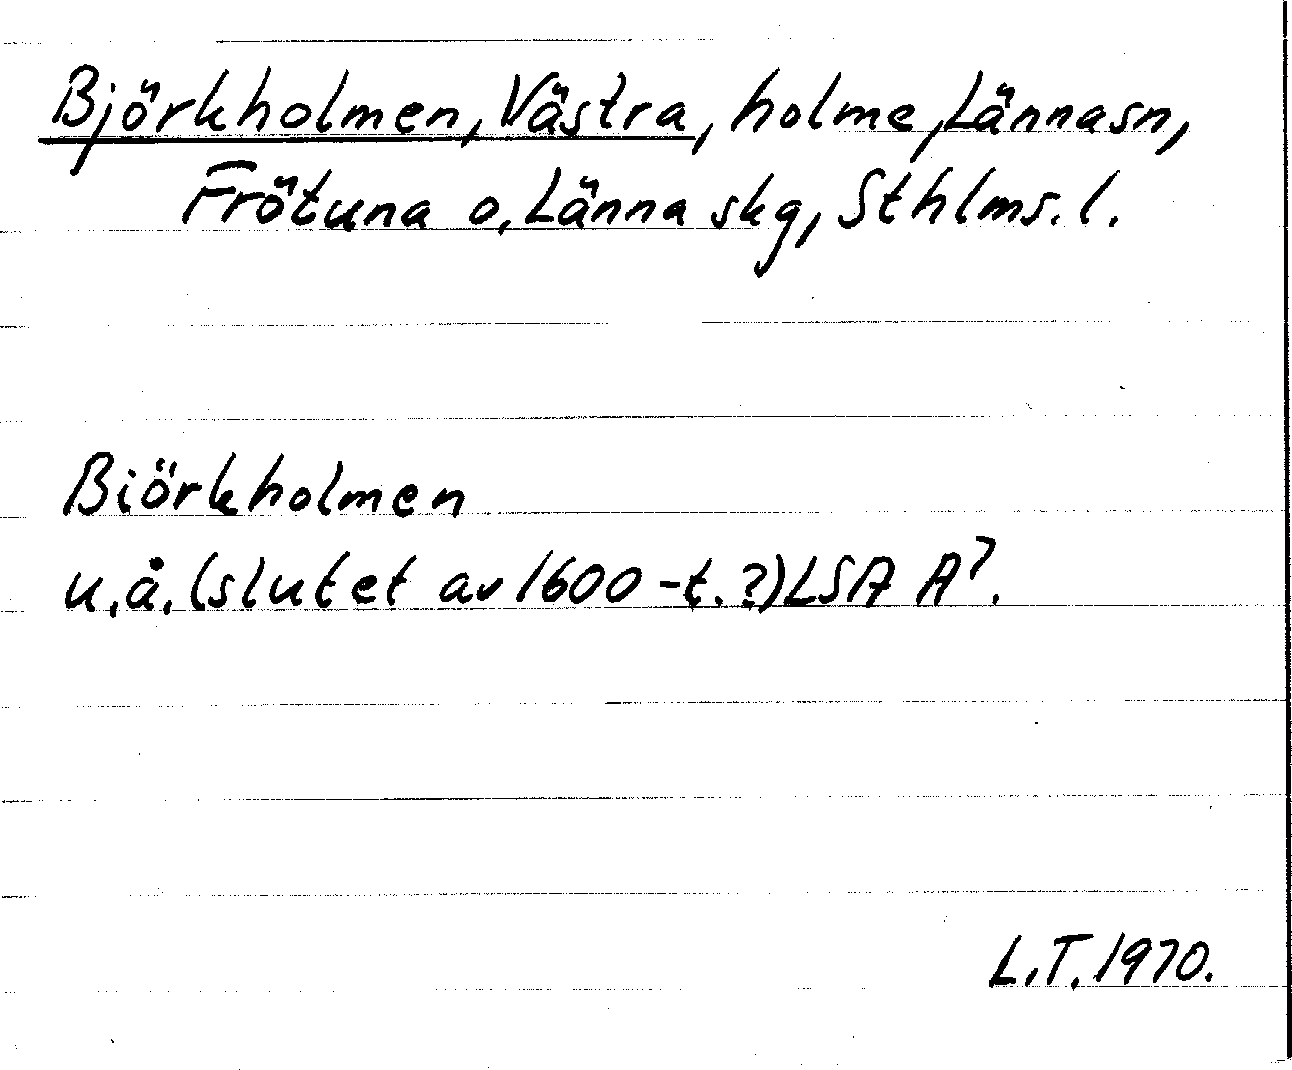 Björkholmen, Västra, holme, Lännasn,
Frötuna o, Länna skg, Sthlms. l.
Biörkholmen
u.å. (slutet av 1600-t.?) LSA A⁷.
L.T. 1970.